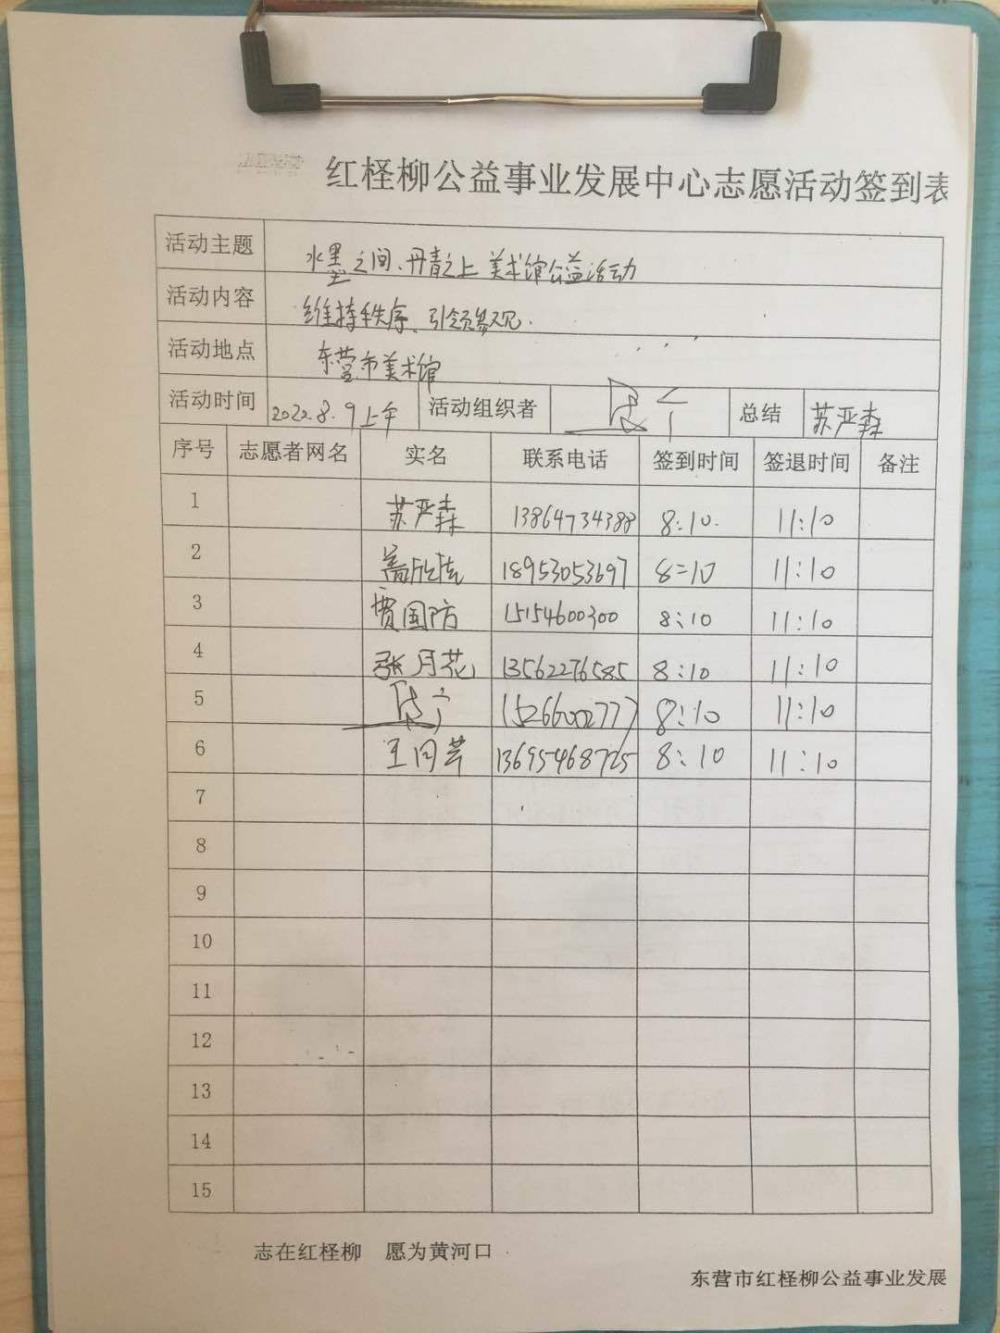 红柽柳公益事业发展中心志愿活动签到表
活动主题 水墨之间、丹青之上 美术馆公益活动
活动内容 维持秩序、引领参观.
活动地点 东营市美术馆
活动时间 2022.8.9上午 活动组织者 总结 苏严森
序号 志愿者网名 实名 联系电话 签到时间 签退时间 备注
1 苏严森 13864734388 8:10. 11:10
2 18953053697 8:10 11:10
3 贾国防 15154600300 8:10 11:10
4 张月花 13562276585 8:10 11:10
5 15266002777 8:10 11:10
6 王同芹 13695468725 8:10 11:10
7
8
9
10
11
12
13
14
15
志在红柽柳 愿为黄河口
东营市红柽柳公益事业发展